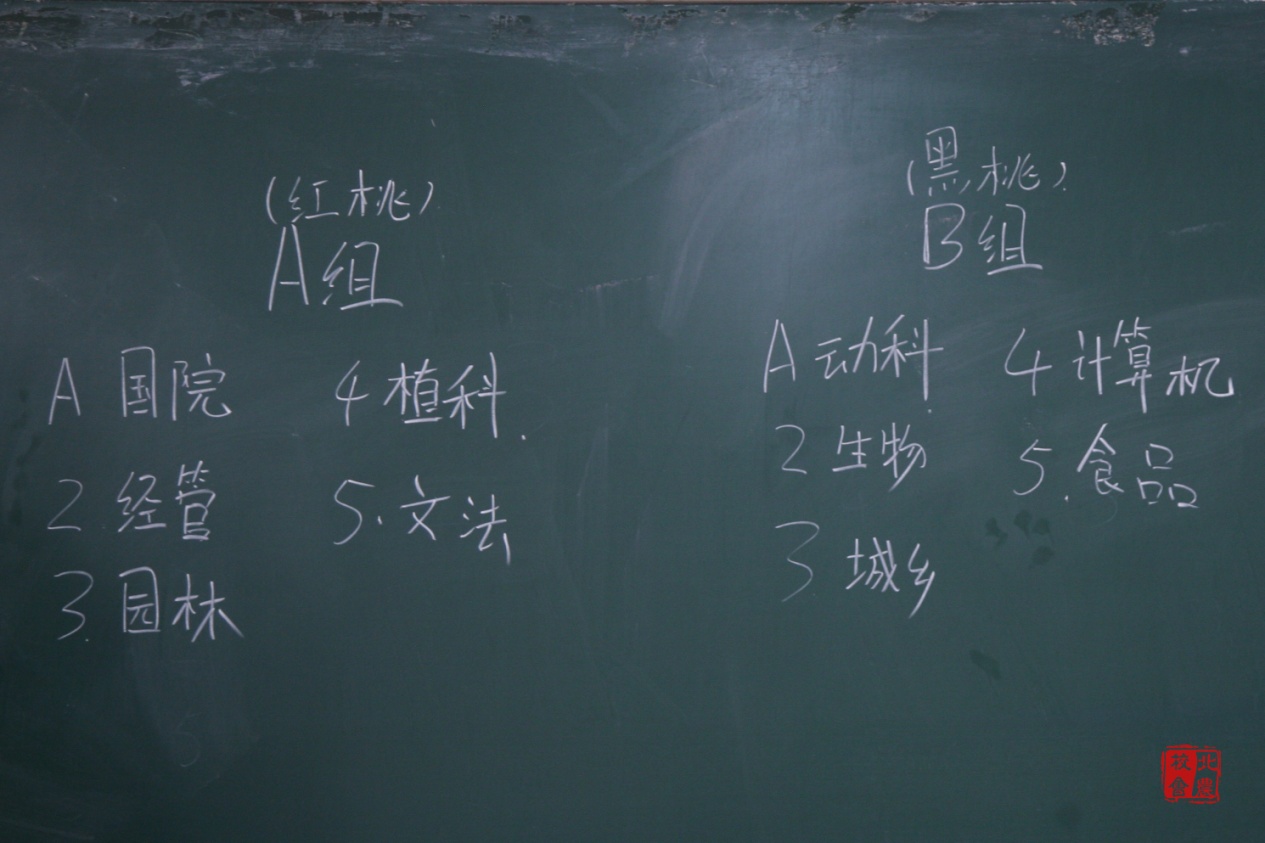 (红桃)
A组
A 国院
2 经管
3. 园林
4 植科.
5. 文法
(黑桃)
B组
A 动科
2 生物
3 城乡
4 计算机
5. 食品
北農
校會